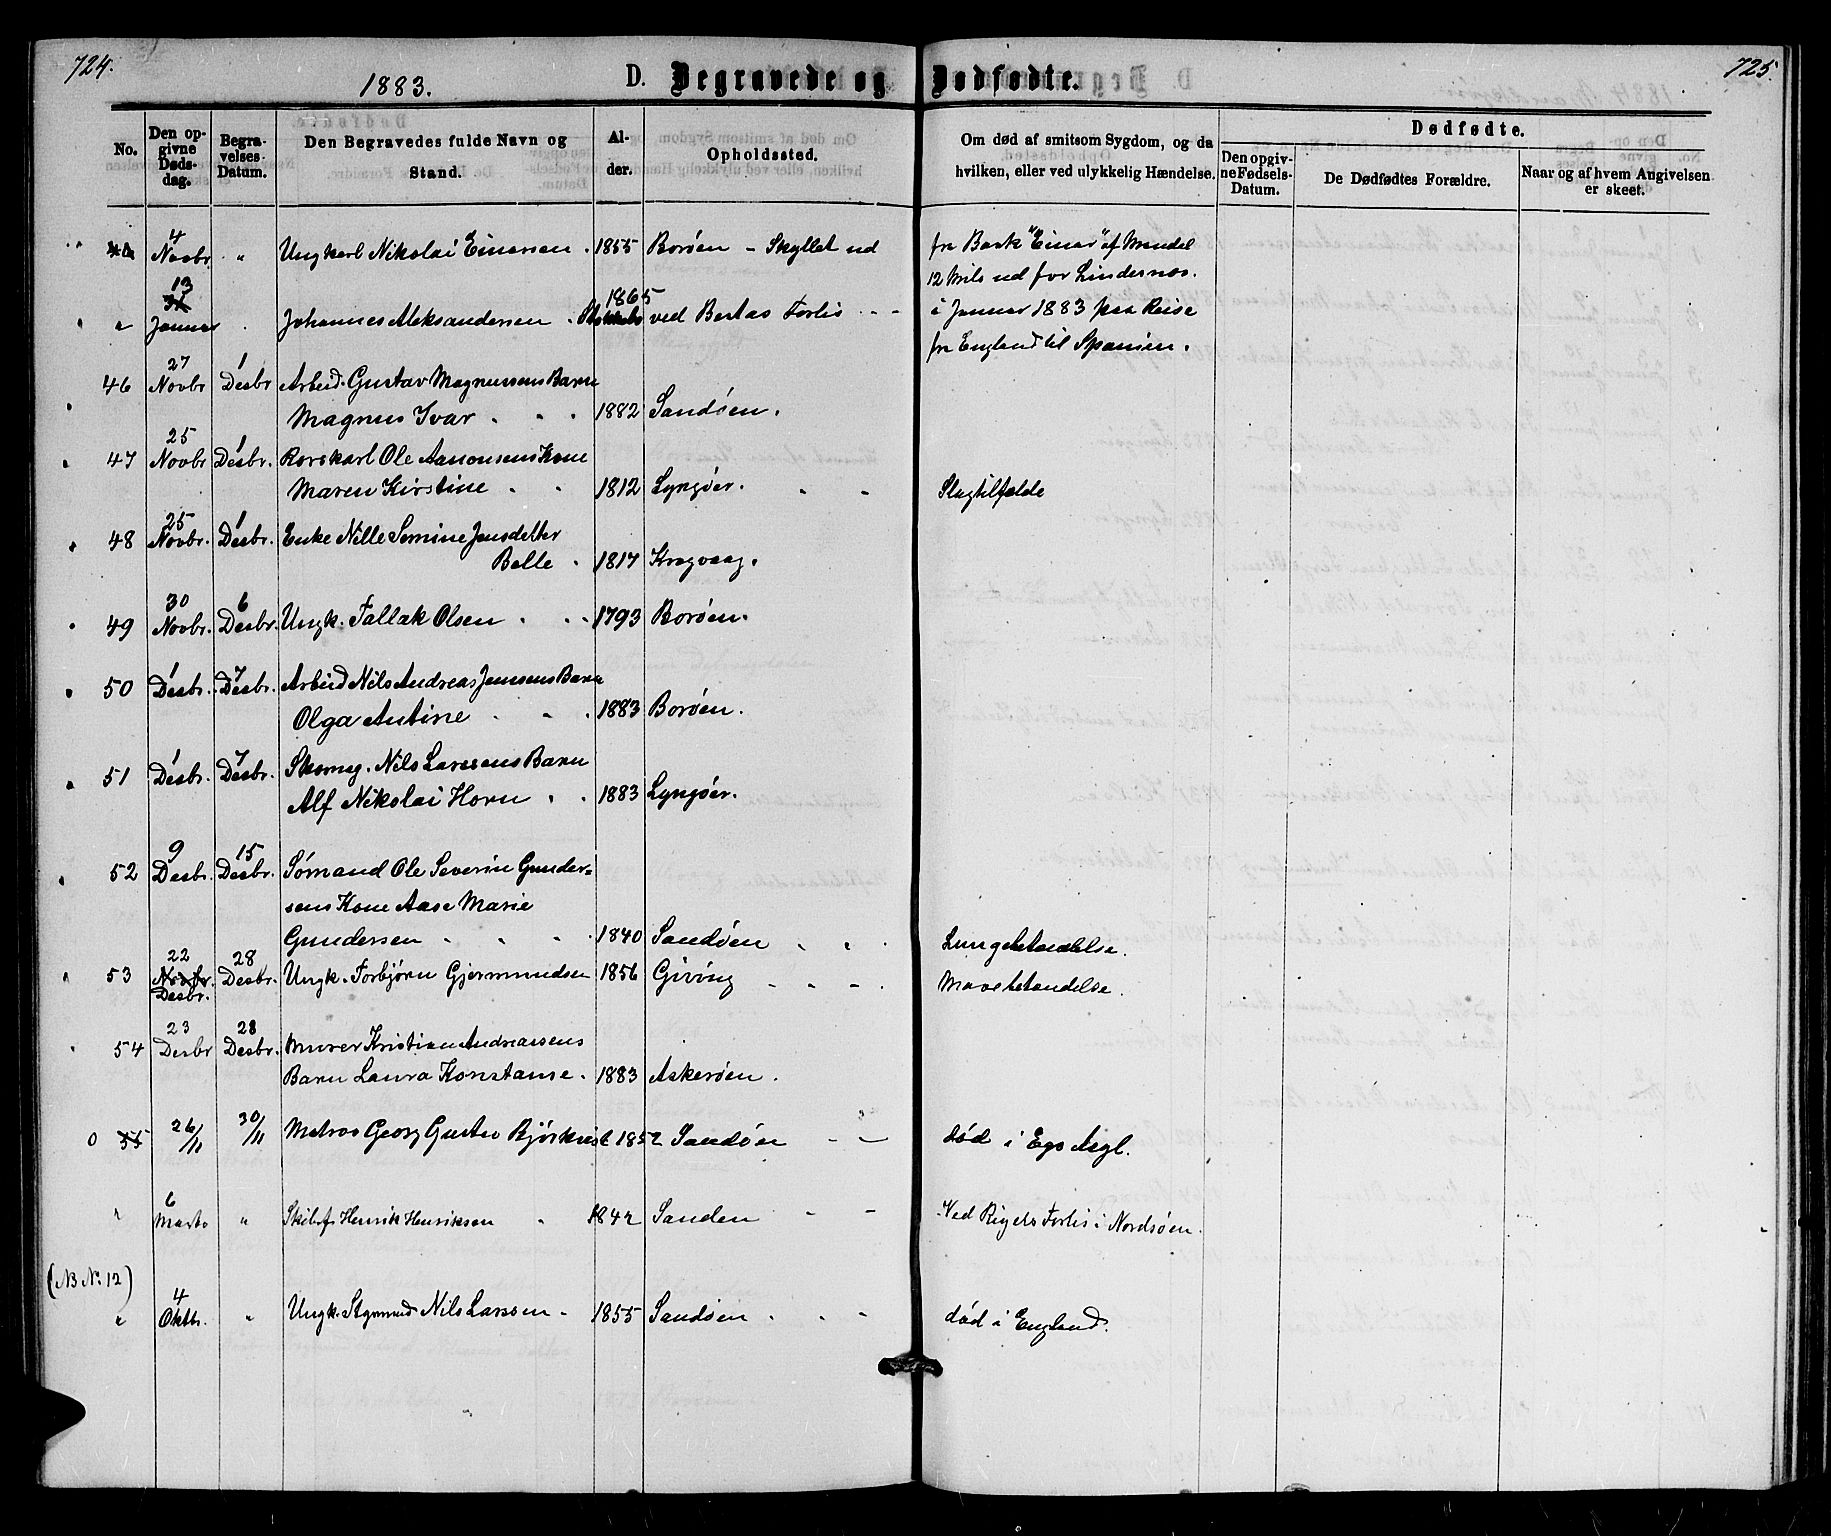 724.
1883.
D. Begravede og Dødfødte.
725.
No.
Den opgivne Dødsdag.
Begravelses-Datum.
Den Begravedes fulde Navn og Stand.
Alder.
Opholdssted.
Om død af smitsom Sygdom, og da hvilken, eller ved ulykkelig Hændelse.
Dødfødte.
Den opgivne Fødsels-Datum.
De Dødfødtes Forældre.
Naar og af hvem Angivelsen er skeet.
4 Novbr. " Ungkarl Nikolai Einersen . 1855 Borøen - Skyllet ud fra Bark "Einar" af Mandal
12 Mils ud for Lindernæs.
13 Januar Johannes Aleksandersen . 1865 ved Bertas Forlis - - i Januar 1883 paa Reise
fra England til Spanien.
46 27 Novbr 1 Desbr Arbeid. Gustav Magnussens Barn
Magnus Ivar . . . 1882 Sandøen.
47 25 Novbr 1 Desbr. Rorskarl Ole Aanonsens Kone
Maren Kirstine . . 1812 Lyngøer. . - Slagtilfælde
48 25 Novbr. 1 Desbr. Enke Nille Semine Jensdatter
Balle . 1817 Kragvaag.
49 30 Novbr. 6 Desbr. Ungk. Tallak Olsen . . . 1793 Borøen.
50 1 Desbr. 7 Desbr. Arbeid Nils Andreas Jensens Barn
Olga Antine . . . 1883 Borøen.
51 1 Desbr. 7 Desbr. Skomg. Nils Larssens Barn
Alf Nikolai Horn . . 1883 Lyngøer.
52 9 Desbr. 15 Desbr. Sømand Ole Severin Gunder=
sens Kone Aase Marie
Gundersen . . . . 1840 Sandøen . . . Lungebetændelse.
53 22 Novbr. Desbr. 28 Desbr. Ungk. Torbjørn Gjermundsen 1856 Giving - - - . Mavebetændelse.
54 23 Desbr 28 Desbr. Murer Kristian Andreassens
Barn Laura Konstanse . 1883 Askerøen.
0 55 26/11 30/11 Matros Georg Gustav Bjørkvist 1852 Sandøen - - død i Egs Asyl.
" 6 Marts " Skibsf. Henrik Henriksen . 1842 Sanden - - Ved Rigels Forlis i Nordsøen.
(NB No. 12)
" 4 Oktbr. " Ungk. Styrmand Nils Larssen - 1855 Sandøen . . - død i England.